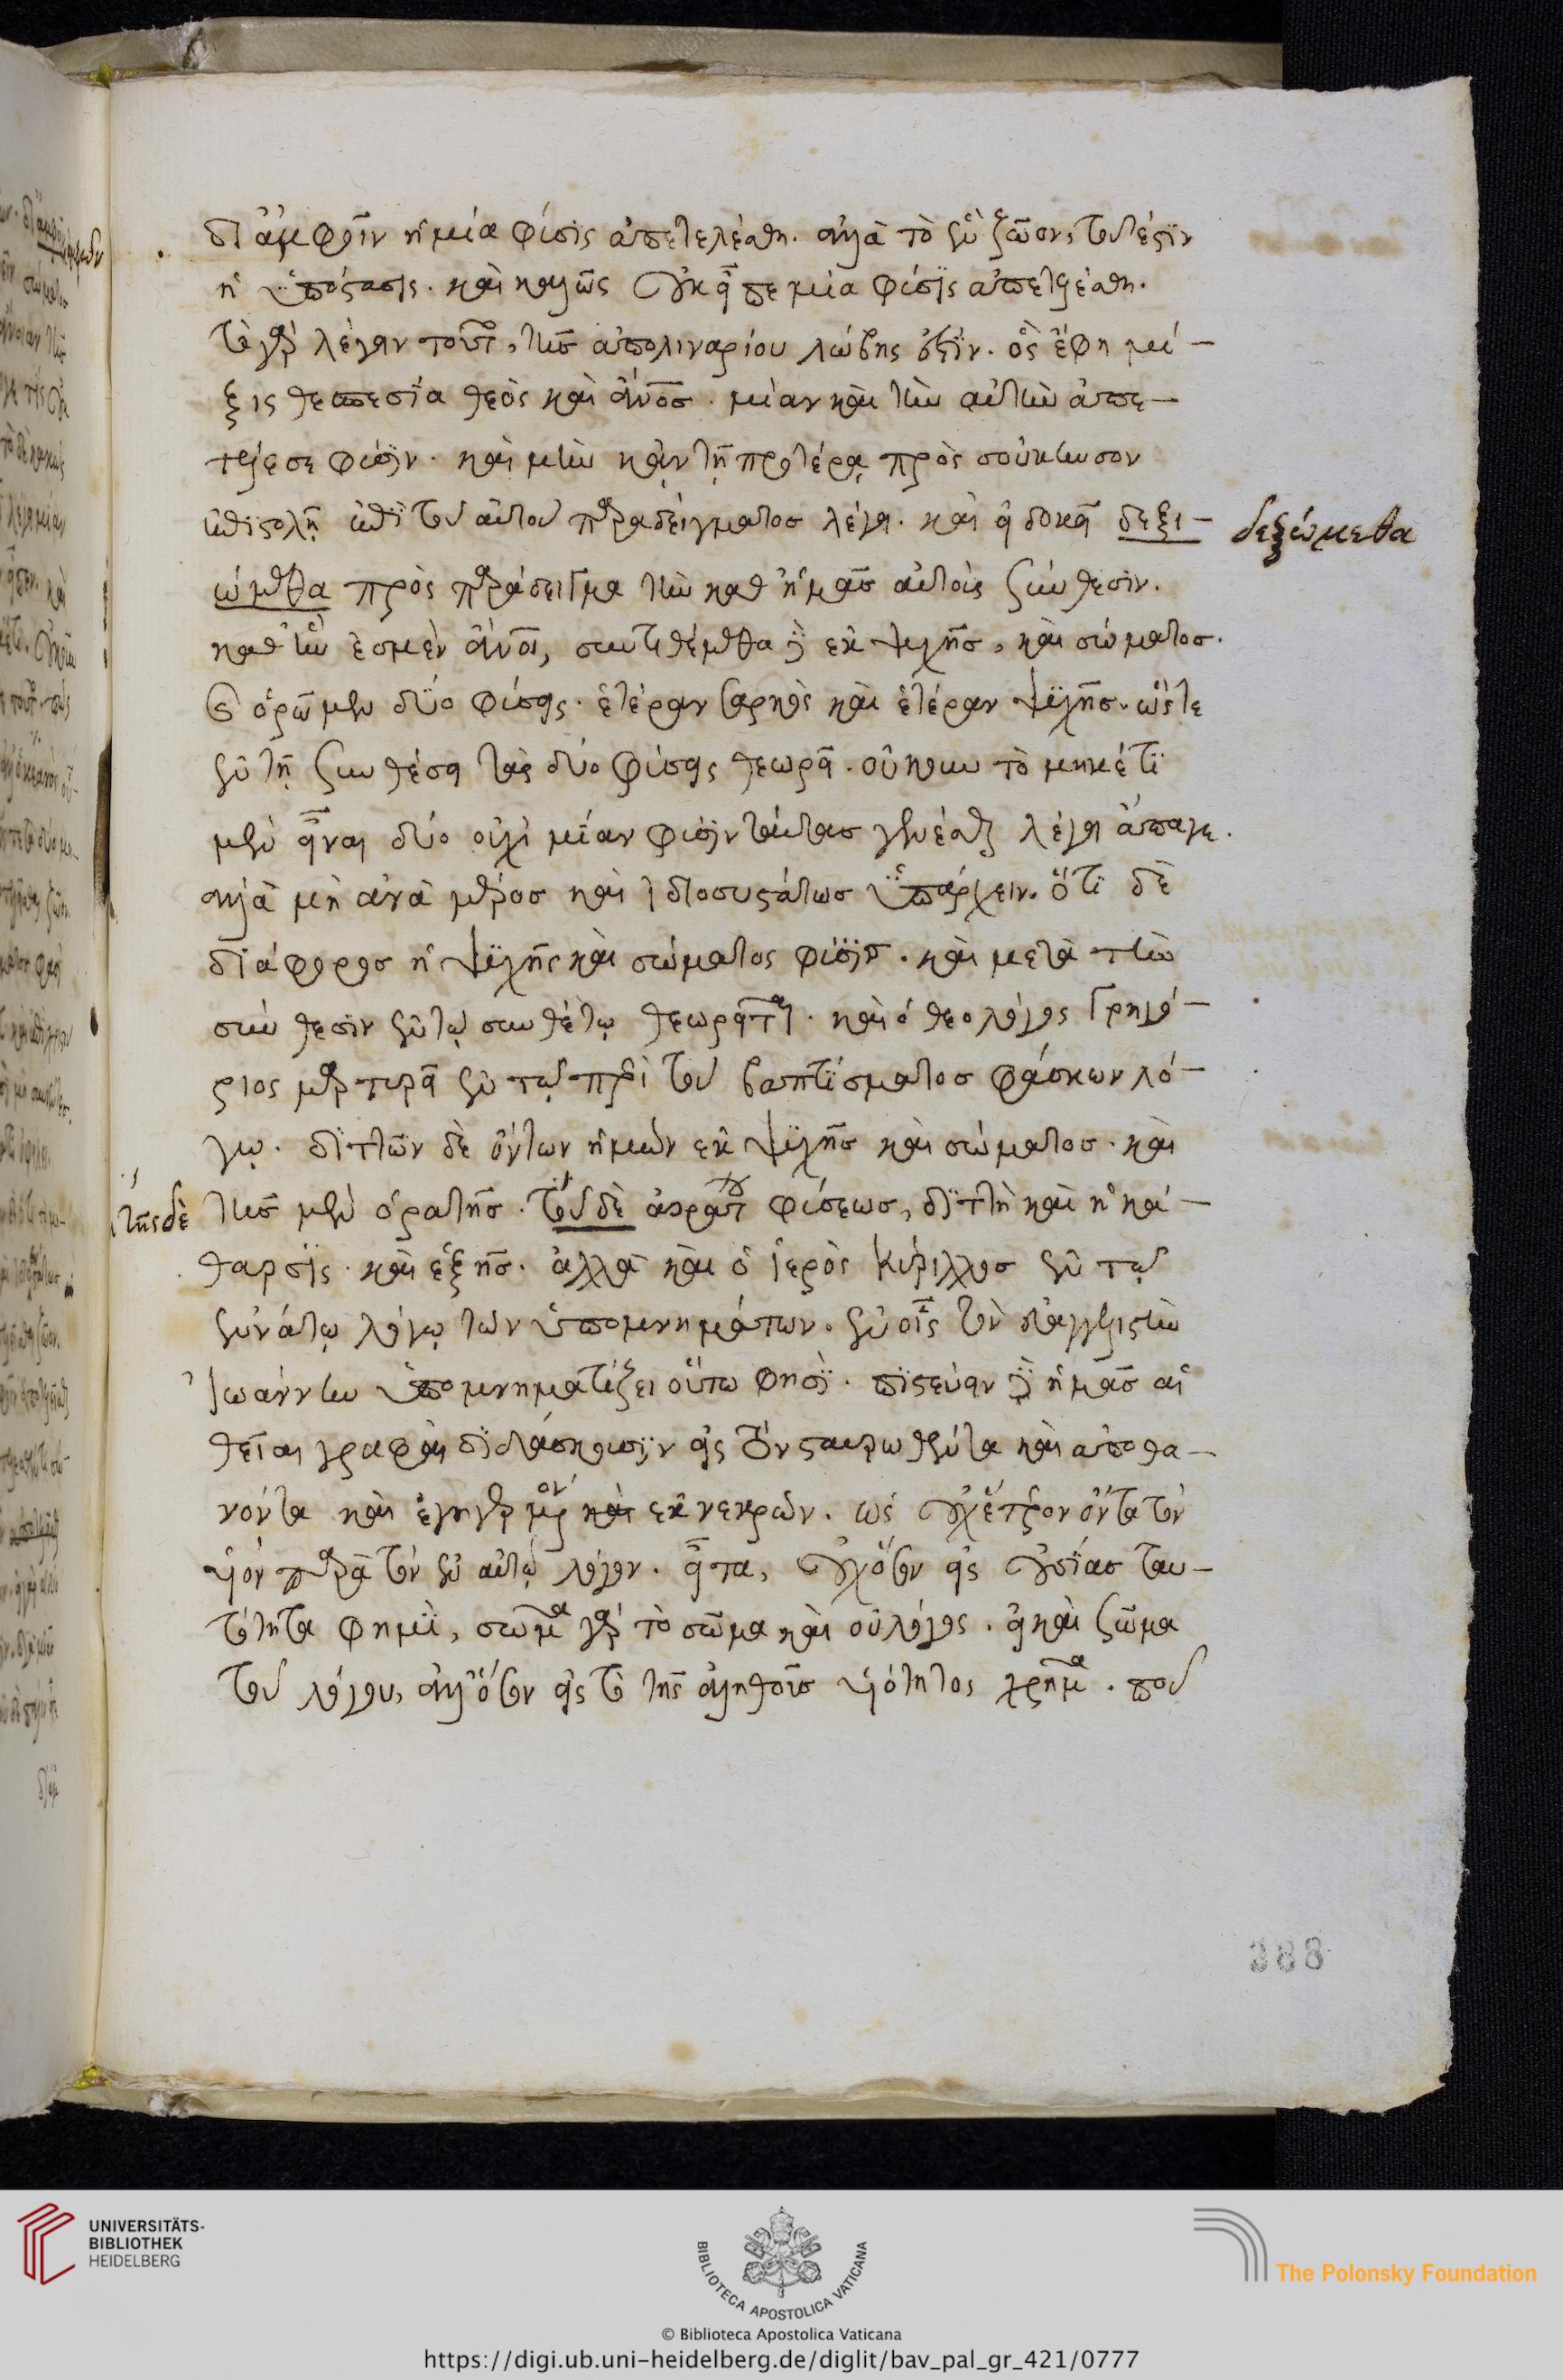 δι' ἀμφοῖν ἡ μία φύσις ἀπετελέσθη. ἀλλὰ τὸ ἓν ζῶον, τουτέστιν
ἡ ὑπόστασις. καὶ καλῶς οὐκ εἶπε μία φύσις ἀπετελέσθη.
τὸ γὰρ λέγειν τοῦτο, τῆς ἀπολιναρίου λώβης ἐστίν. ὃς ἔφη μί-
ξις θεσπεσία θεὸς καὶ ἄνος. μίαν καὶ τὴν αὐτὴν ἀπε-
τέλεσε φύσιν. καὶ μὴν κἀν τῇ προτέρᾳ πρὸς σούκενσον
ἐπιστολῇ ἐπὶ τοῦ αὐτοῦ παραδείγματος λέγει. καὶ εἰ δοκεῖ δεξι-
ώμεθα πρὸς παράδειγμα τὴν καθ' ἡμᾶς αὐτοὺς σύνθεσιν.
καθ' ἣν ἐσμὲν ἄνοι, συντιθέμεθα γὰρ ἐκ ψυχῆς, καὶ σώματος.
καὶ ὁρῶμεν δύο φύσεις. ἑτέραν σαρκὸς καὶ ἑτέραν ψυχῆς. ὥστε
ἐν τῇ συνθέσει τὰς δύο φύσεις θεωρεῖ. οὔκουν τὸ μηκέτι
μὲν εἶναι δύο οὐχὶ μίαν φύσιν ταύτας γενέσθαι λέγει ἄπαγε.
ἀλλὰ μὴ ἀνὰ μέρος καὶ ἰδιοσυστάτως ὑπάρχειν. ὅτι δὲ
διάφορος ἡ ψυχῆς καὶ σώματος φύσις. καὶ μετὰ τὴν
σύνθεσιν ἐν τῷ συνθέτῳ θεωρεῖται. καὶ ὁ θεολόγος Γρηγό-
ριος μαρτυρεῖ ἐν τῷ περὶ τοῦ βαπτίσματος φάσκων λό-
γῳ. διττῶν δὲ ὄντων ἡμῶν ἐκ ψυχῆς καὶ σώματος. καὶ
τῆς μὲν ὁρατῆς. τοῦ δὲ ἀοράτου φύσεως, διττὴ καὶ ἡ κά-
θαρσις. καὶ ἑξῆς. ἀλλὰ καὶ ὁ ἱερὸς Κύριλλος ἐν τῷ
ἐννάτῳ λόγῳ τῶν ὑπομνημάτων. ἐν οἷς τὸν εὐαγγελιστὴν
Ἰωάννην ὑπομνηματίζει οὕτω φησί. πιστεύειν γὰρ ἡμᾶς αἱ
θεῖαι γραφαὶ διδάσκουσιν εἰς τὸν σταυρωθέντα καὶ ἀποθα-
νόντα καὶ ἐγηγερμένον ἐκ νεκρῶν. ὡς οὐχ ἕτερον ὄντα τὸν
υἱὸν παρὰ τὸν ἐν αὐτῷ λόγον. εἶτα, οὐχ ὅσον εἰς οὐσίας ταυ-
τότητα φημί, σῶμα γὰρ τὸ σῶμα καὶ οὐ λόγος. εἰ καὶ σῶμα
τοῦ λόγου, ἀλλ' ὅσον εἰς τὸ τῆς ἀληθοῦς υἱότητος χρῆμα. ποῦ
δεξώμεθα
τῆς δὲ
388
UNIVERSITÄTS-
BIBLIOTHEK
HEIDELBERG
BIBLIOTECA APOSTOLICA VATICANA
The Polonsky Foundation
© Biblioteca Apostolica Vaticana
https://digi.ub.uni-heidelberg.de/diglit/bav_pal_gr_421/0777